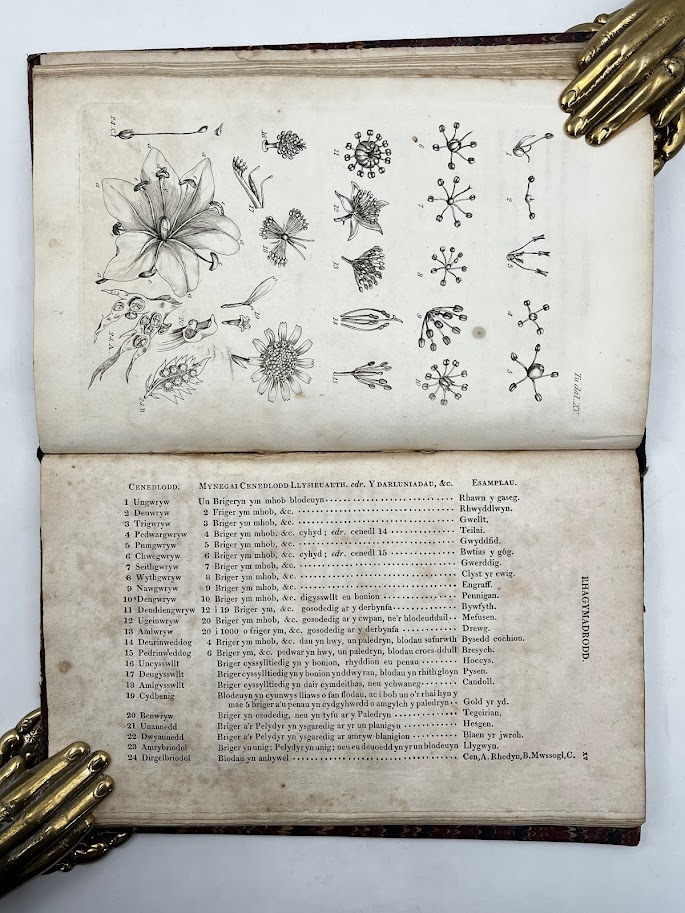 To dal. XV.
22.C.
10
11
6
1
7
2
8
3
13
4
9
14
5
15
10
22.A.
22.B.
CENEDLODD. MYNEGAI CENEDLODD LLYSIEUAETH, edr. Y DARLUNIADAU, &c. ESAMPLAU.
1 Ungwryw Un Brigeryn ym mhob blodeuyn Rhawn y gaseg.
2 Deuwryw 2 Friger ym mhob, &c. Rhwyddlwyn.
3 Trigwryw 3 Briger ym mhob, &c. Gwellt,
4 Pedwargwryw 4 Briger ym mhob, &c. cyhyd; edr. cenedl 14 Teilai.
5 Pumgwryw 5 Briger ym mhob, &c. Gwyddfid.
6 Chwegwryw 6 Briger ym mhob, &c. cyhyd; edr. cenedl 15 Bwtias y gôg.
7 Seithgwryw 7 Briger ym mhob, &c. Gwerddig.
8 Wythgwryw 8 Briger ym mhob, &c. Clyst yr ewig.
9 Nawgwryw 9 Briger ym mhob, &c. Engraff.
10 Dengwryw 10 Briger ym mhob, &c. digysswllt eu bonion Pennigan.
11 Deuddengwryw 12 i 19 Briger ym, &c. gosodedig ar y derbynfa Bywfyth.
12 Ugeinwryw 20 Briger ym mhob, &c. gosodedig ar y cwpan, ne'r blodeuddsil Mefusen.
13 Amlwryw 20 i 1000 o friger ym, &c. gosodedig ar y derbynfa Drewg.
14 Deurinweddog 4 Briger ym mhob, &c. dau yn hwy, un paledryn, blodau safnrwth Bysedd cochion.
15 Pedrinweddog 6 Briger ym, &c. pedwar yn hwy, un paledryn, blodau croes-ddull Bresych.
16 Uncysswllt Briger cyssylltiedig yn y bonion, rhyddion eu penau Hoccys.
17 Deugysswllt Briger cyssylltiedig yn y bonion yn ddwy rau, blodau yn rhith gloyn Pysen.
18 Amlgysswllt Briger cyssylltiedig yn dair cymdeithas, neu ychwaneg Candoll.
19 Cydbenig Blodeuyn yn cynnwys lliaws o fan flodau, ac i bob un o'r rhai hyn y
mae 5 briger a'u penau yn cydgyhwrdd o amgylch y paledryn Gold yr yd.
20 Benwryw Briger yn osodedig, neu yn tyfu ar y Paledryn Tegeirian.
21 Unannedd Briger a'r Pelydyr yn ysgaredig ar yr un planigyn Hesgen.
22 Dwyannedd Briger a'r Pelydyr yn ysgaredig ar amryw blanigion Blaen yr jwrch.
23 Amrybriodol Briger yn unig; Pelydyr yn unig; neu eu deuoedd yn yr un blodeuyn Llygwyn.
24 Dirgelbriodol Blodau yn anhywel Cen, A. Rhedyn, B. Mwssogl, C.
RHAGYMADRODD.
xv